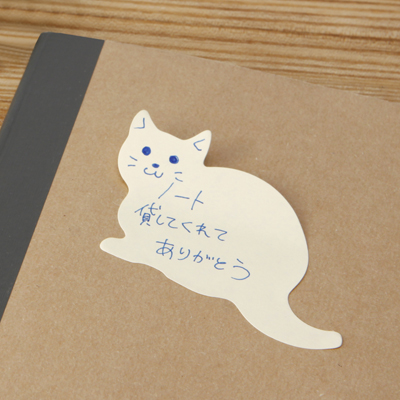 ノート
貸してくれて
ありがとう